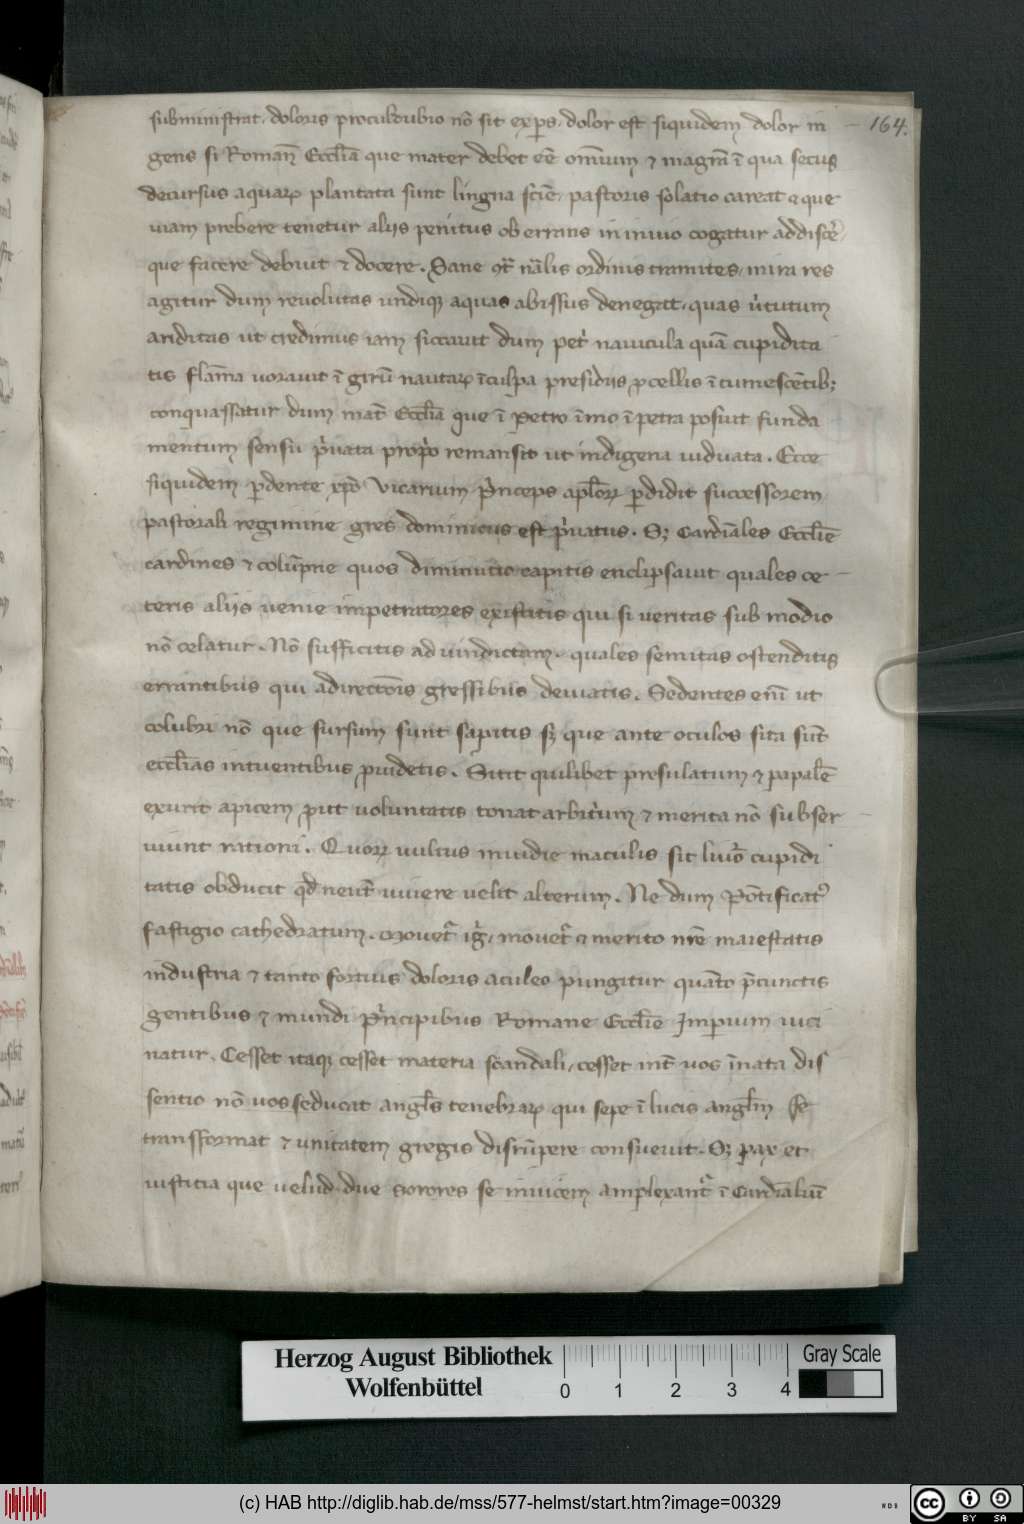 subministrat. doloris proculdubio nō sit exꝑs. dolor est siquidem dolor in
— 164.
gens si Romań Eccl̄ia que mater debet eē om̄ium ⁊ magr̄a ī qua secus
decursus aquaꝝ plantata sunt lingna sciē, pastoris solatio careat ⁊ que
uiam prebere tenetur aliis penitus oberrans in inuio cogatur addiscē
que facere debuit ⁊ docere. Sane nālis ordinis tramites, mira res
agitur dum reuolutas undiqꝫ aquas abissus denegat, quas ututum
ariditas ut credimus iam siccauit dum pet navicula quā cupidita
tis flam̄a uorauit ī girū nautaꝝ īculpa presidiis ꝓcellis ītumescētibꝫ
conquassatur dum mat̄ Eccl̄ia que ī Petro īmo ī petra posuit funda
mentum sensu p̍uata prop̍o remansit ut indigena uiduata. Ecce
siquidem ꝑdente xp̄o Vicarium p̍nceps apl̄oꝝ ꝑdidit successorem
pastorali regimine gres dominicus est p̍uatus. Sꝫ Cardīales Eccl̄ie
cardines ⁊ colūpne quos diminutio capitis enclipsauit quales ce —
teris aliis uenie impetratores existitis qui si ueritas sub modio
nō celatur. Nō sufficitis ad uindictam. quales semitas ostenditis
errantibus qui a directōis gressibus deuiatis. Sedentes enī ut
colubri nō que sursum sunt sapitis sꝫ que ante oculos sita sūt
eccl̄ias intuentibus ꝓuidetis. Sitit quilibet presulatum ⁊ papalē
exurit apicem ꝓut uoluntatis tonat arbit̍um ⁊ merita nō subser —
uiunt rationi. Quoꝝ uultus inuidie maculis sic liuo᷑ cupidi
tatis obducit qd̄ neut̄ uiuere uelit alterum. Ne dum Pōtificat᷒
fastigio cathedratum. mouet᷑ ig̍, mouet᷑ ⁊ merito nr̄e maiestatis
industria ⁊ tanto fortius doloris aculeo pungitur quāto p̄cunctis
gentibus ⁊ mundi p̍ncipibus Romane Eccl̄ie Imꝑium uici
natur. Cesset itaqꝫ cesset materia scandali, cesset int̄ uos īnata dis
sentio nō uos seducat angl̄s tenebraꝝ qui sepe ī lucis angl̄m se
transformat ⁊ unitatem gregis disrūpere consueuit. Sꝫ pax et
iusticia que uelud due sorores se inuicem amplexant᷑ ī Cardīaliū
Herzog August Bibliothek
Wolfenbüttel
0 1 2 3 4
Gray Scale
(c) HAB http://diglib.hab.de/mss/577-helmst/start.htm?image=00329
WDB
cc BY SA